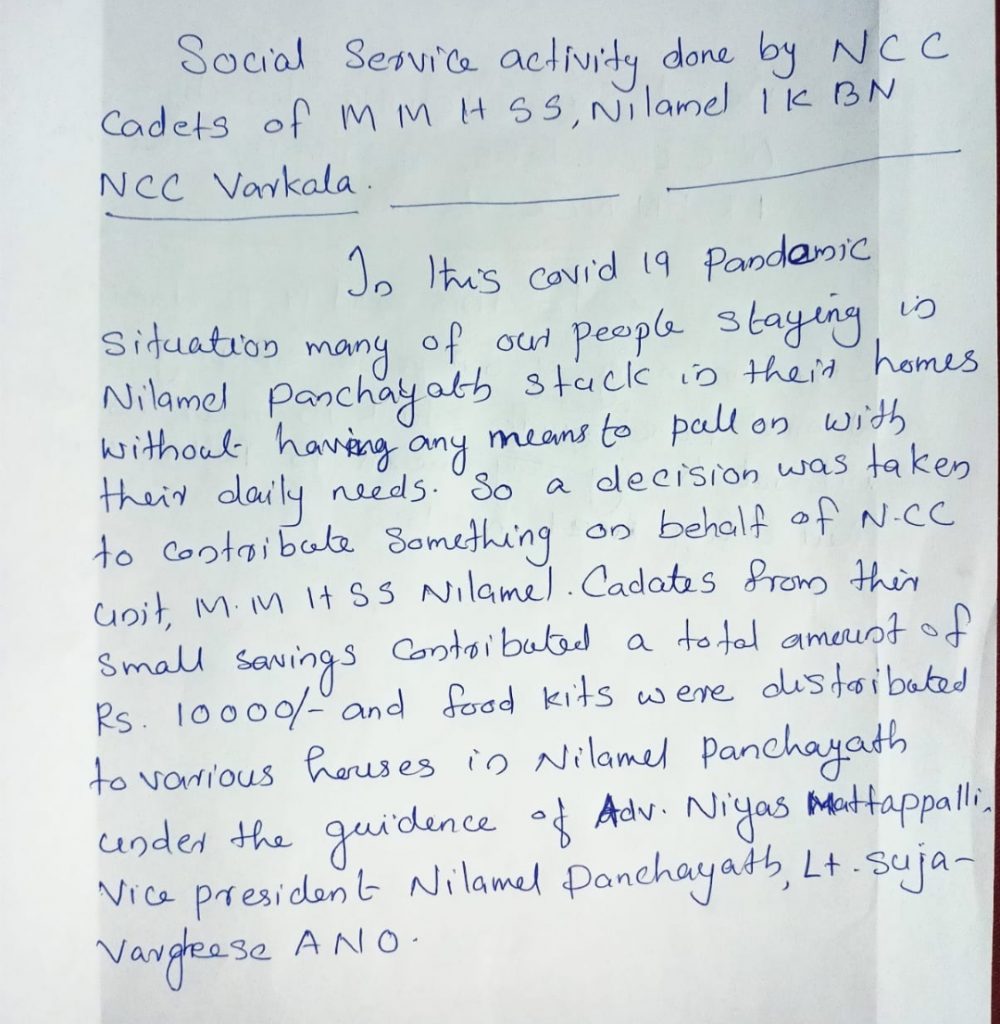 Social Service activity done by NCC
Cadets of M M H S S, Nilamel 1 K BN
NCC Varkala.
In this covid 19 Pandamic
situation many of our people staying in
Nilamel Panchayath stuck in their homes
without having any means to pull on with
their daily needs. So a decision was taken
to contribute Something on behalf of N.CC
unit, M.M H S S Nilamel. Cadates from their
small savings contributed a total amount of
Rs. 10000/- and food kits were distributed
to various houses in Nilamel Panchayath
under the guidence of Adv. Niyas Mattappalli,
Vice president Nilamel Panchayath, Lt. Suja-
Varghese ANO.